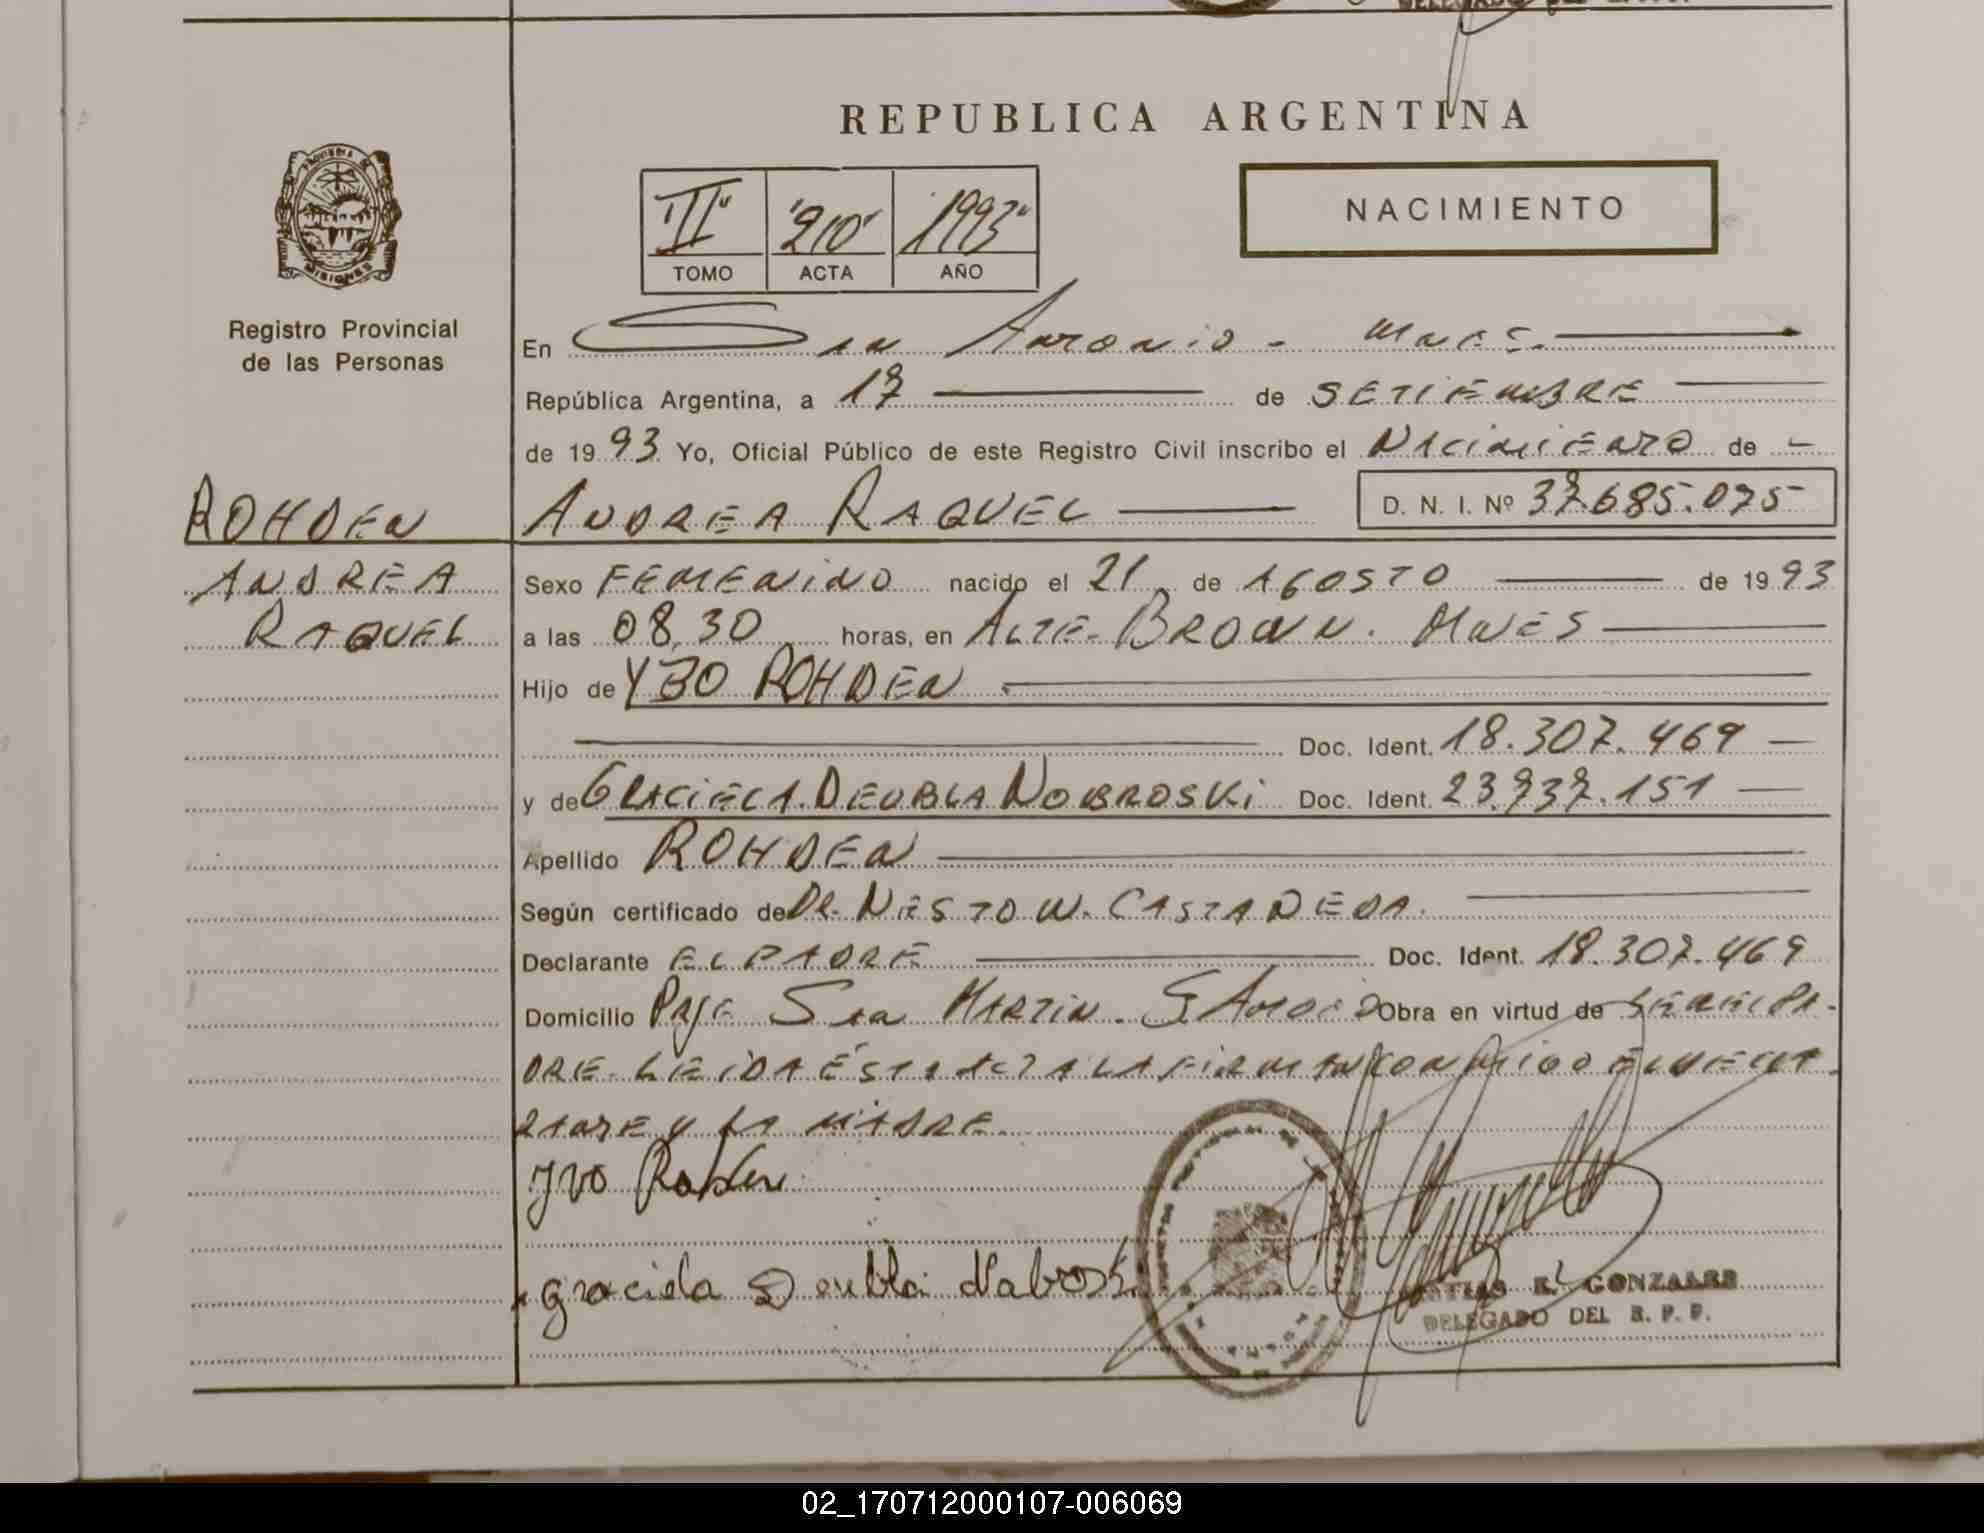 REPUBLICA ARGENTINA
PROVINCIA DE
MISIONES
III 210 1993
TOMO ACTA AÑO
NACIMIENTO
Registro Provincial
de las Personas
En San Antonio - Mnes.
República Argentina, a 17 de SETIEMBRE
de 1993 Yo, Oficial Público de este Registro Civil inscribo el NACIMIENTO de
ROHDEN ANDREA RAQUEL D. N. I. Nº 37.685.075
ANDREA Sexo FEMENINO nacido el 21 de AGOSTO de 1993
RAQUEL a las 08,30 horas, en ALTE. BROWN. MNES
Hijo de YBO ROHDEN
Doc. Ident. 18.307.469
y de GRACIELA DEUBLA NOBROSKI Doc. Ident. 23.737.151
Apellido ROHDEN
Según certificado de DR. NESTO W. CASTAÑEDA.
Declarante EL PADRE Doc. Ident. 18.307.469
Domicilio PJE SAN MARTIN. S Antonio Obra en virtud de SER EL PA-
DRE. LEIDA ESTA ACTA LA FIRMAN CONMIGO EL DECLA-
RANTE Y LA MADRE.
Ivo Rohden
graciela Deubla Nabroski
GONZALES
DELEGADO DEL R. P. P.
02_170712000107-006069